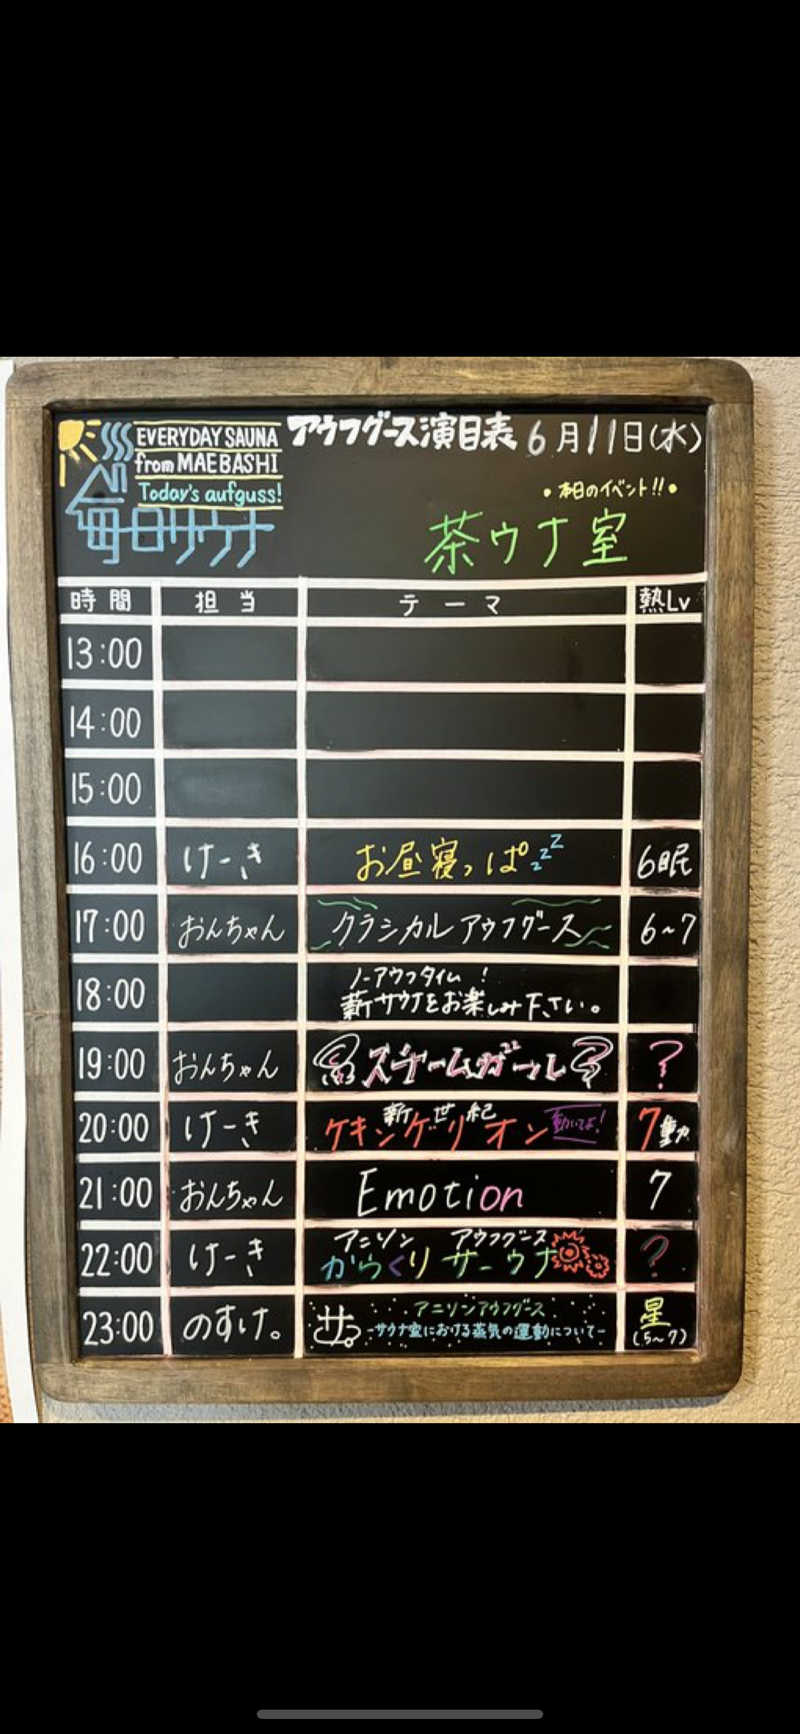 EVERYDAY SAUNA
from MAEBASHI
Today's aufguss!
毎日サウナ
アウフグース演目表 6月11日(水)
・本日のイベント!!・
茶ウナ室
時間 担当 テーマ 熱Lv
13:00
14:00
15:00
16:00 けーき お昼寝っぱzzz 6眠
17:00 おんちゃん クラシカルアウフグース 6~7
18:00 ノーアウフタイム!
薪サウナをお楽しみ下さい。
19:00 おんちゃん スチームガール ?
20:00 けーき 新世紀
ケキンゲリオン 動いてよ! 7動
21:00 おんちゃん Emotion 7
22:00 けーき アニソン アウフグース
からくりサーウナ ?
23:00 のすけ。 サ。 アニソンアウフグース
-サウナ室における蒸気の運動について- 星
(5~7)